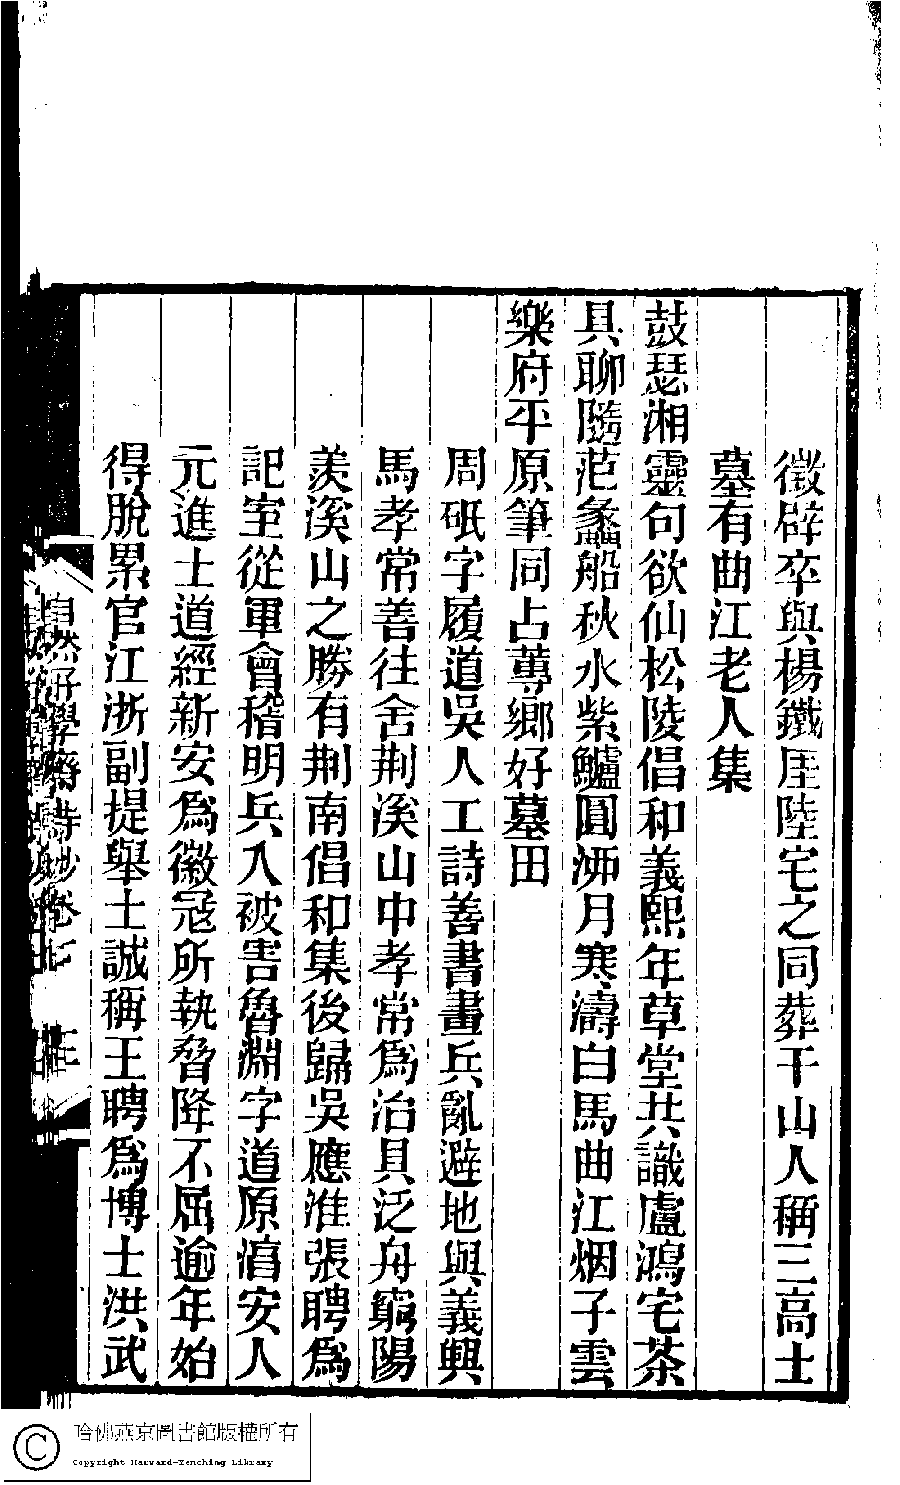 徵辟卒與楊鐵厓陸宅之同葬干山人稱三高士
墓有曲江老人集
鼓瑟湘靈句欲仙松陵倡和義熙年草堂共識盧鴻宅茶
具聊隨范蠡船秋水紫鱸圓泖月寒濤白馬曲江烟子雲
樂府平原筆同占蓴鄉好墓田
周砥字履道吳人工詩善書畫兵亂避地與義興
馬孝常善往舍荆溪山中孝常爲治具泛舟窮陽
羨溪山之勝有荆南倡和集後歸吳應淮張聘爲
記室從軍會稽明兵入被害魯淵字道原淯安人
元進士道經新安爲徽冦所執脅降不屈逾年始
得脫累官江浙副提舉士誠稱王聘爲博士洪武
自然好學齋詩鈔卷七
哈佛燕京圖書館版權所有
Copyright Harvard-Yenching Library